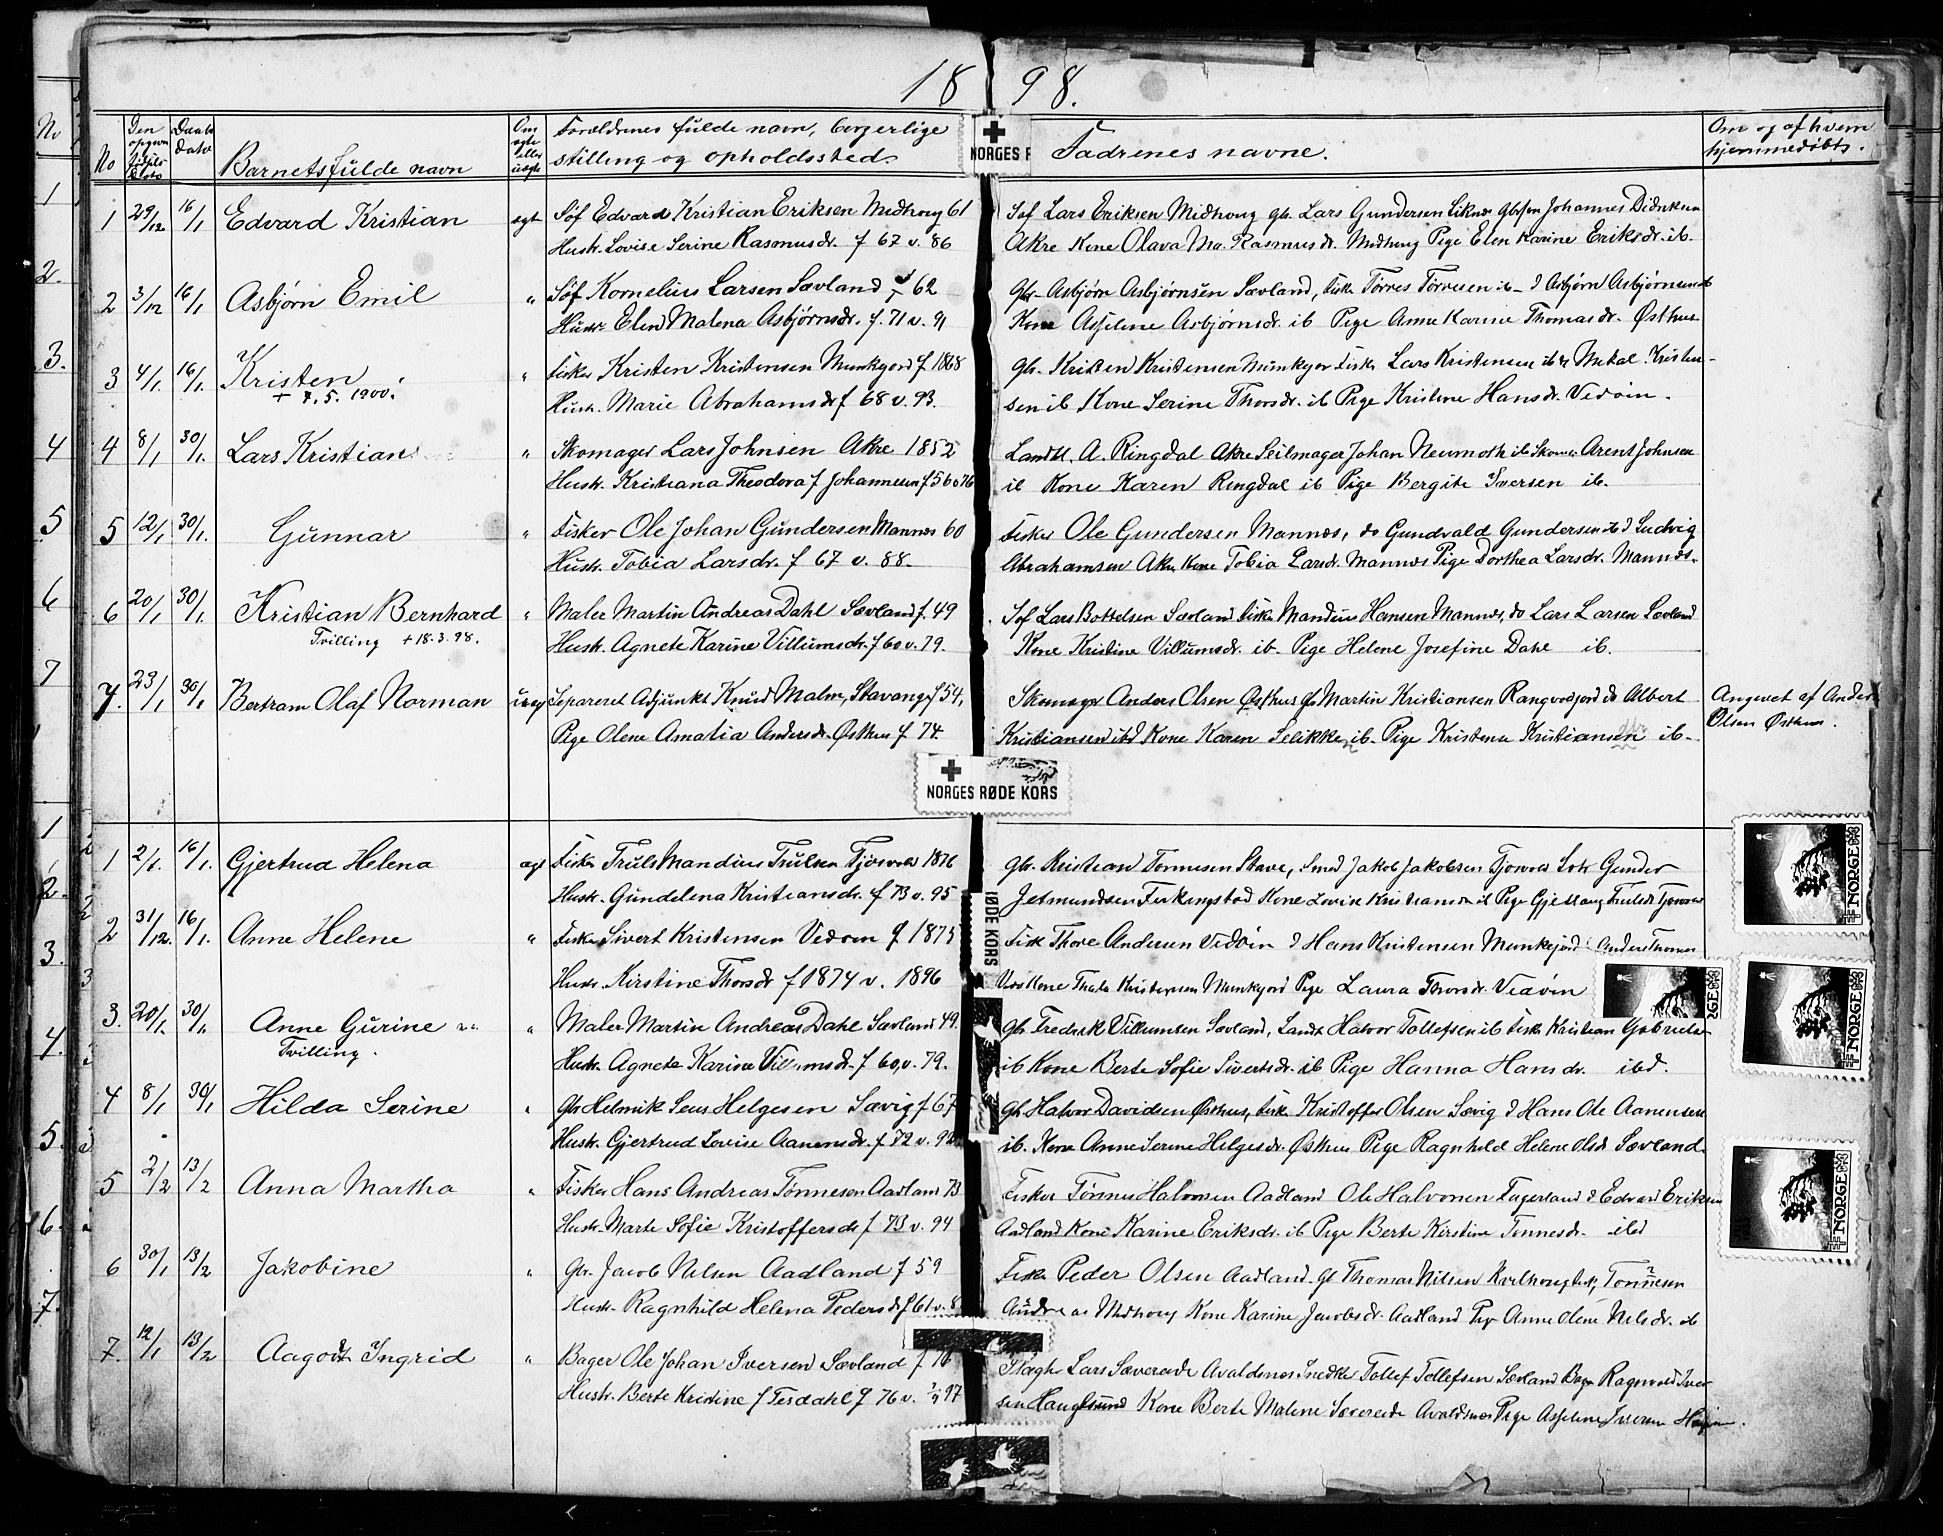 18 98.
No
Den opgivn
Daabs dato
Barnetsfulde navn
Om egte eller uegte
Forældrenes fulde navn, borgerlige
stilling og opholdssted.
NORGES R
Fadrenes navne.
Om og af hvem
hjemmedöbts.
1 29/12 16/1 Edvard Kristian egt Søf Edvard Kristian Eriksen Midhoug 61
Hustr. Lovise Serine Rasmusdr. f 67 v. 86
Sef Lars Eriksen Midhoug gb. Lars Gundersen Liknes Johannes Didriksen
Akre Kone Olava Ma. Rasmusdr. Midhoug Pige Elen Karine Eriksdr. ib.
2 3/12 16/1 Asbjørn Emil " Søf Kornelius Larsen Sævland f 62
Hustr. Elen Malena Asbjørnsdr. f. 71 v. 91
Gbr. Asbjørn Asbjørnsen Sævland, fisk Tørres ib. d Asbjørn Asbjørnsen ib
Kone Asseline Asbjørnsdr. ib Pige Anne Karine Thomasdr. Østhus
3 4/1 16/1 Kristen " Fisker Kristen Kristensen Munkejord f 1868
+ 7.5.1900.
Hustr. Marie Abrahamsdr f 68 v. 93.
gb. Kristen Kristensen Munkejor Fisk Lars Kristensen ib Mikal Kristen-
sen ib Kone Serine Thorsdr. ib Pige Kristine Hansdr. Vedøin.
4 8/1 30/1 Lars Kristian " Skomager Lars Johnsen Akre 1852
Hustr. Kristiana Theodora f Johannesen f 56 v 76
Landhl. A. Ringdal Akre Seilmager Johan Neumoth ib Skom. Arent Johnsen
ib Kone Karen Ringdal ib Pige Bergite Iversen ib.
5 12/1 30/1 Gunnar " Fisker Ole Johan Gundersen Mannes 60
Hustr. Tobia Larsdr. f 67 v. 88.
Fisker Ole Gundersen Mannes, do Gundvald Gundersen ib d Ludvig
Abrahamsen Akre Kone Tobia Larsdr. Mannes Pige Dorthea Larsdr. Mannes.
6 20/1 30/1 Kristian Bernhard " Maler Martin Andreas Dahl Sævland f. 49
Tvilling +18.3.98.
Hustr. Agnete Karine Villumsdr. f 60 v. 79.
Sef Lars Bottelsen Sævland Fisk Mandius Hansen Mannes, do Lars Larsen Sævland
Kone Kristine Villumsdr. ib. Pige Helene Josefine Dahl ib.
7. 23/1 30/1 Bertram Olaf Norman uegt Separeret Adjunkt Knud Malm, Stavanger f 54,
Pige Olene Amalia Andersdr. Østhus f 74.
Skomager Anders Olsen Østhus gb Martin Kristiansen Rangvodjord do Albert
Kristiansen ibd Kone Karen Selikken ib. Pige Kristena Kristiansen ib.
Angivet af Anders
Olsen Østhus.
NORGES RØDE KORS
1 2/1. 16/1. Gjertrud Helena egt Fisker Truls Mandius Trulsen Tjosvold 1876
Hustr. Gundelena Kristiansdr. f 73 v. 95
gb. Kristian Tønnesen Stave, Smed Jakob Jakobsen Tjosvold Gunder
Jetmundsen Ferkingstad Kone Lovise Kristiansdr ib Pige Trulsdr Tjosvold
2 31/12. 16/1. Anne Helene " Fisker Sivert Kristensen Vedøin f 1875
Hustr. Kirstine Thorsdr f 1874 v. 1896
Fisk Thore Andersen Vedøin d Hans Kristensen Munkejord Anders Thomas
Kone Kristensen Munkejord Pige Laura Thorsdr. Vedøin
RØDE KORS
3. 20/1 30/1 Anne Gurine " Maler Martin Andreas Dahl Sævland 49.
Tvilling.
Hustr. Agnete Karine Villumsdr. f 60, v. 79.
gb. Fredrik Villumsen Sævland, Landh Halvor Tollefsen ib Fisk Kristian Gabrielsen
ib Kone Berte Sofie Sivertsdr. ib Pige Hanna Hansdr. ibd.
4 8/1 30/1 Hilda Serine " Gbr Helmik Seus Helgesen Sævig f 67
Hustr. Gjertrud Lovise Aanensdr. f 72 v. 92
gb Halvor Davidsen Østhus, Fisk. Kristoffer Olsen Sævig d Hans Ole Aanensen
ib. Kone Anne Serine Helgesdr. Østhus Pige Ragnhild Helene Olsdr Sævland.
5 2/2 13/2 Anna Martha " Fisker Hans Andreas Tønnesen Aadland 73
Hustr. Marte Sofie Kristoffersdr f 73 v. 94
Fisker Tønnes Halvorsen Aadland Ole Halvorsen Fagerland d Edvard Eriksen
Aadland Kone Karine Eriksdr. ib Pige Berte Kirstine Tønnesdr. ibd
6 30/1 13/2 Jakobine " Gbr. Jacob Nilsen Aadland f 59
Hustr. Ragnhild Helena Pedersdr f 61 v. 8
Fisk Peder Olsen Aadland. Gb Thomas Nilsen Kvilhoug fisk, Tønnesen
Andreas Midhoug Kone Karine Jacobsdr. Aadland Pige Anne Olene Nilsdr. ib
7. 12/1 13/2 Aagodt Ingrid " Bager Ole Johan Iversen Sævland f 76
Hustr. Berte Kristine f Tesdahl f 76 v. 97
Lars Sævereide Avaldsnes Snedker Tollef Tollefsen Sævland Bager Ragnvald Iver
sen Haugesund Kone Berte Malene Sævereide Avaldsnes Pige Asseline Iversen
NORGE
NORGE
NORGE